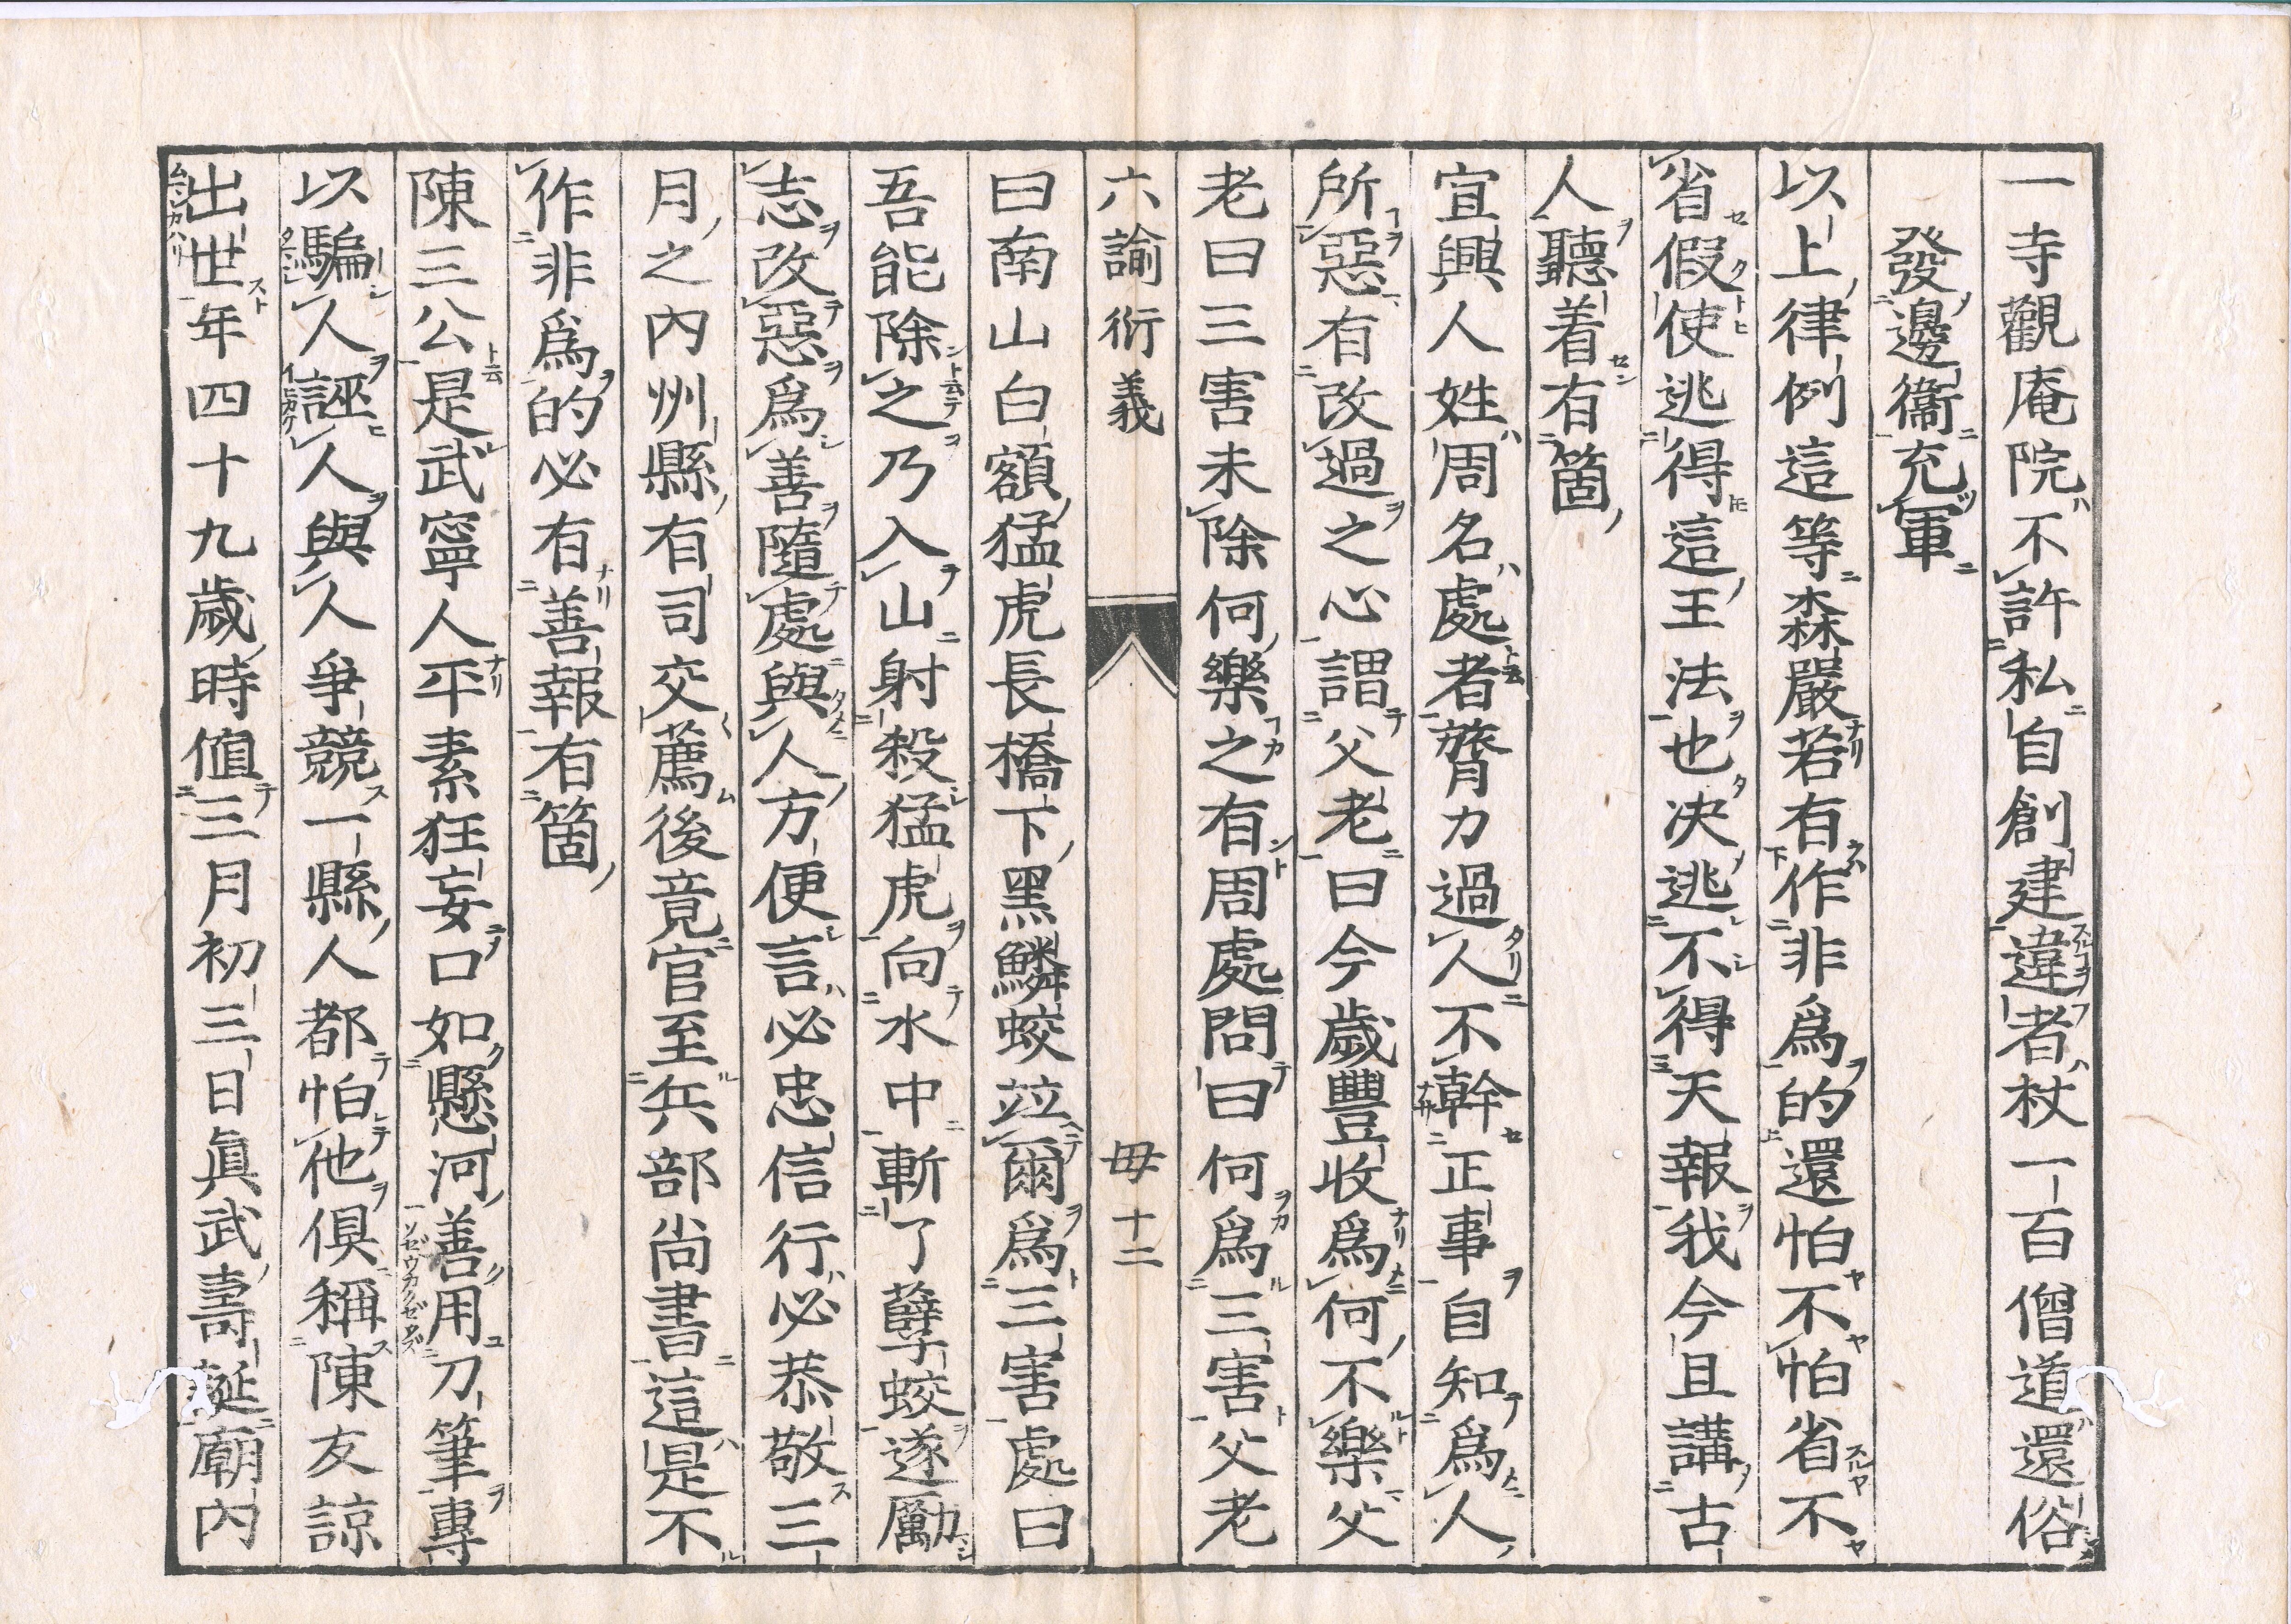 一寺觀庵院不許私自創建違者杖一百僧道還俗
發邊衞充軍
以上律例這等森嚴若有作非爲的還怕不怕省不
省假使逃得這王法也決逃不得天報我今且講古
人聽着有箇
宜興人姓周名處者膂力過人不幹正事自知爲人
所惡有改過之心謂父老曰今歲豐收爲何不樂父
老曰三害未除何樂之有周處問曰何爲三害父老
六諭衍義
毋十二
曰南山白額猛虎長橋下黑鱗蛟竝爾爲三害處曰
吾能除之乃入山射殺猛虎向水中斬了孽蛟遂勵
志改惡爲善隨處與人方便言必忠信行必恭敬三
月之內州縣有司交薦後竟官至兵部尚書這是不
作非爲的必有善報有箇
陳三公是武寧人平素狂妄口如懸河善用刀筆專
以騙人誣人與人爭競一縣人都怕他俱稱陳友諒
出世年四十九歲時値三月初三日眞武壽誕廟內